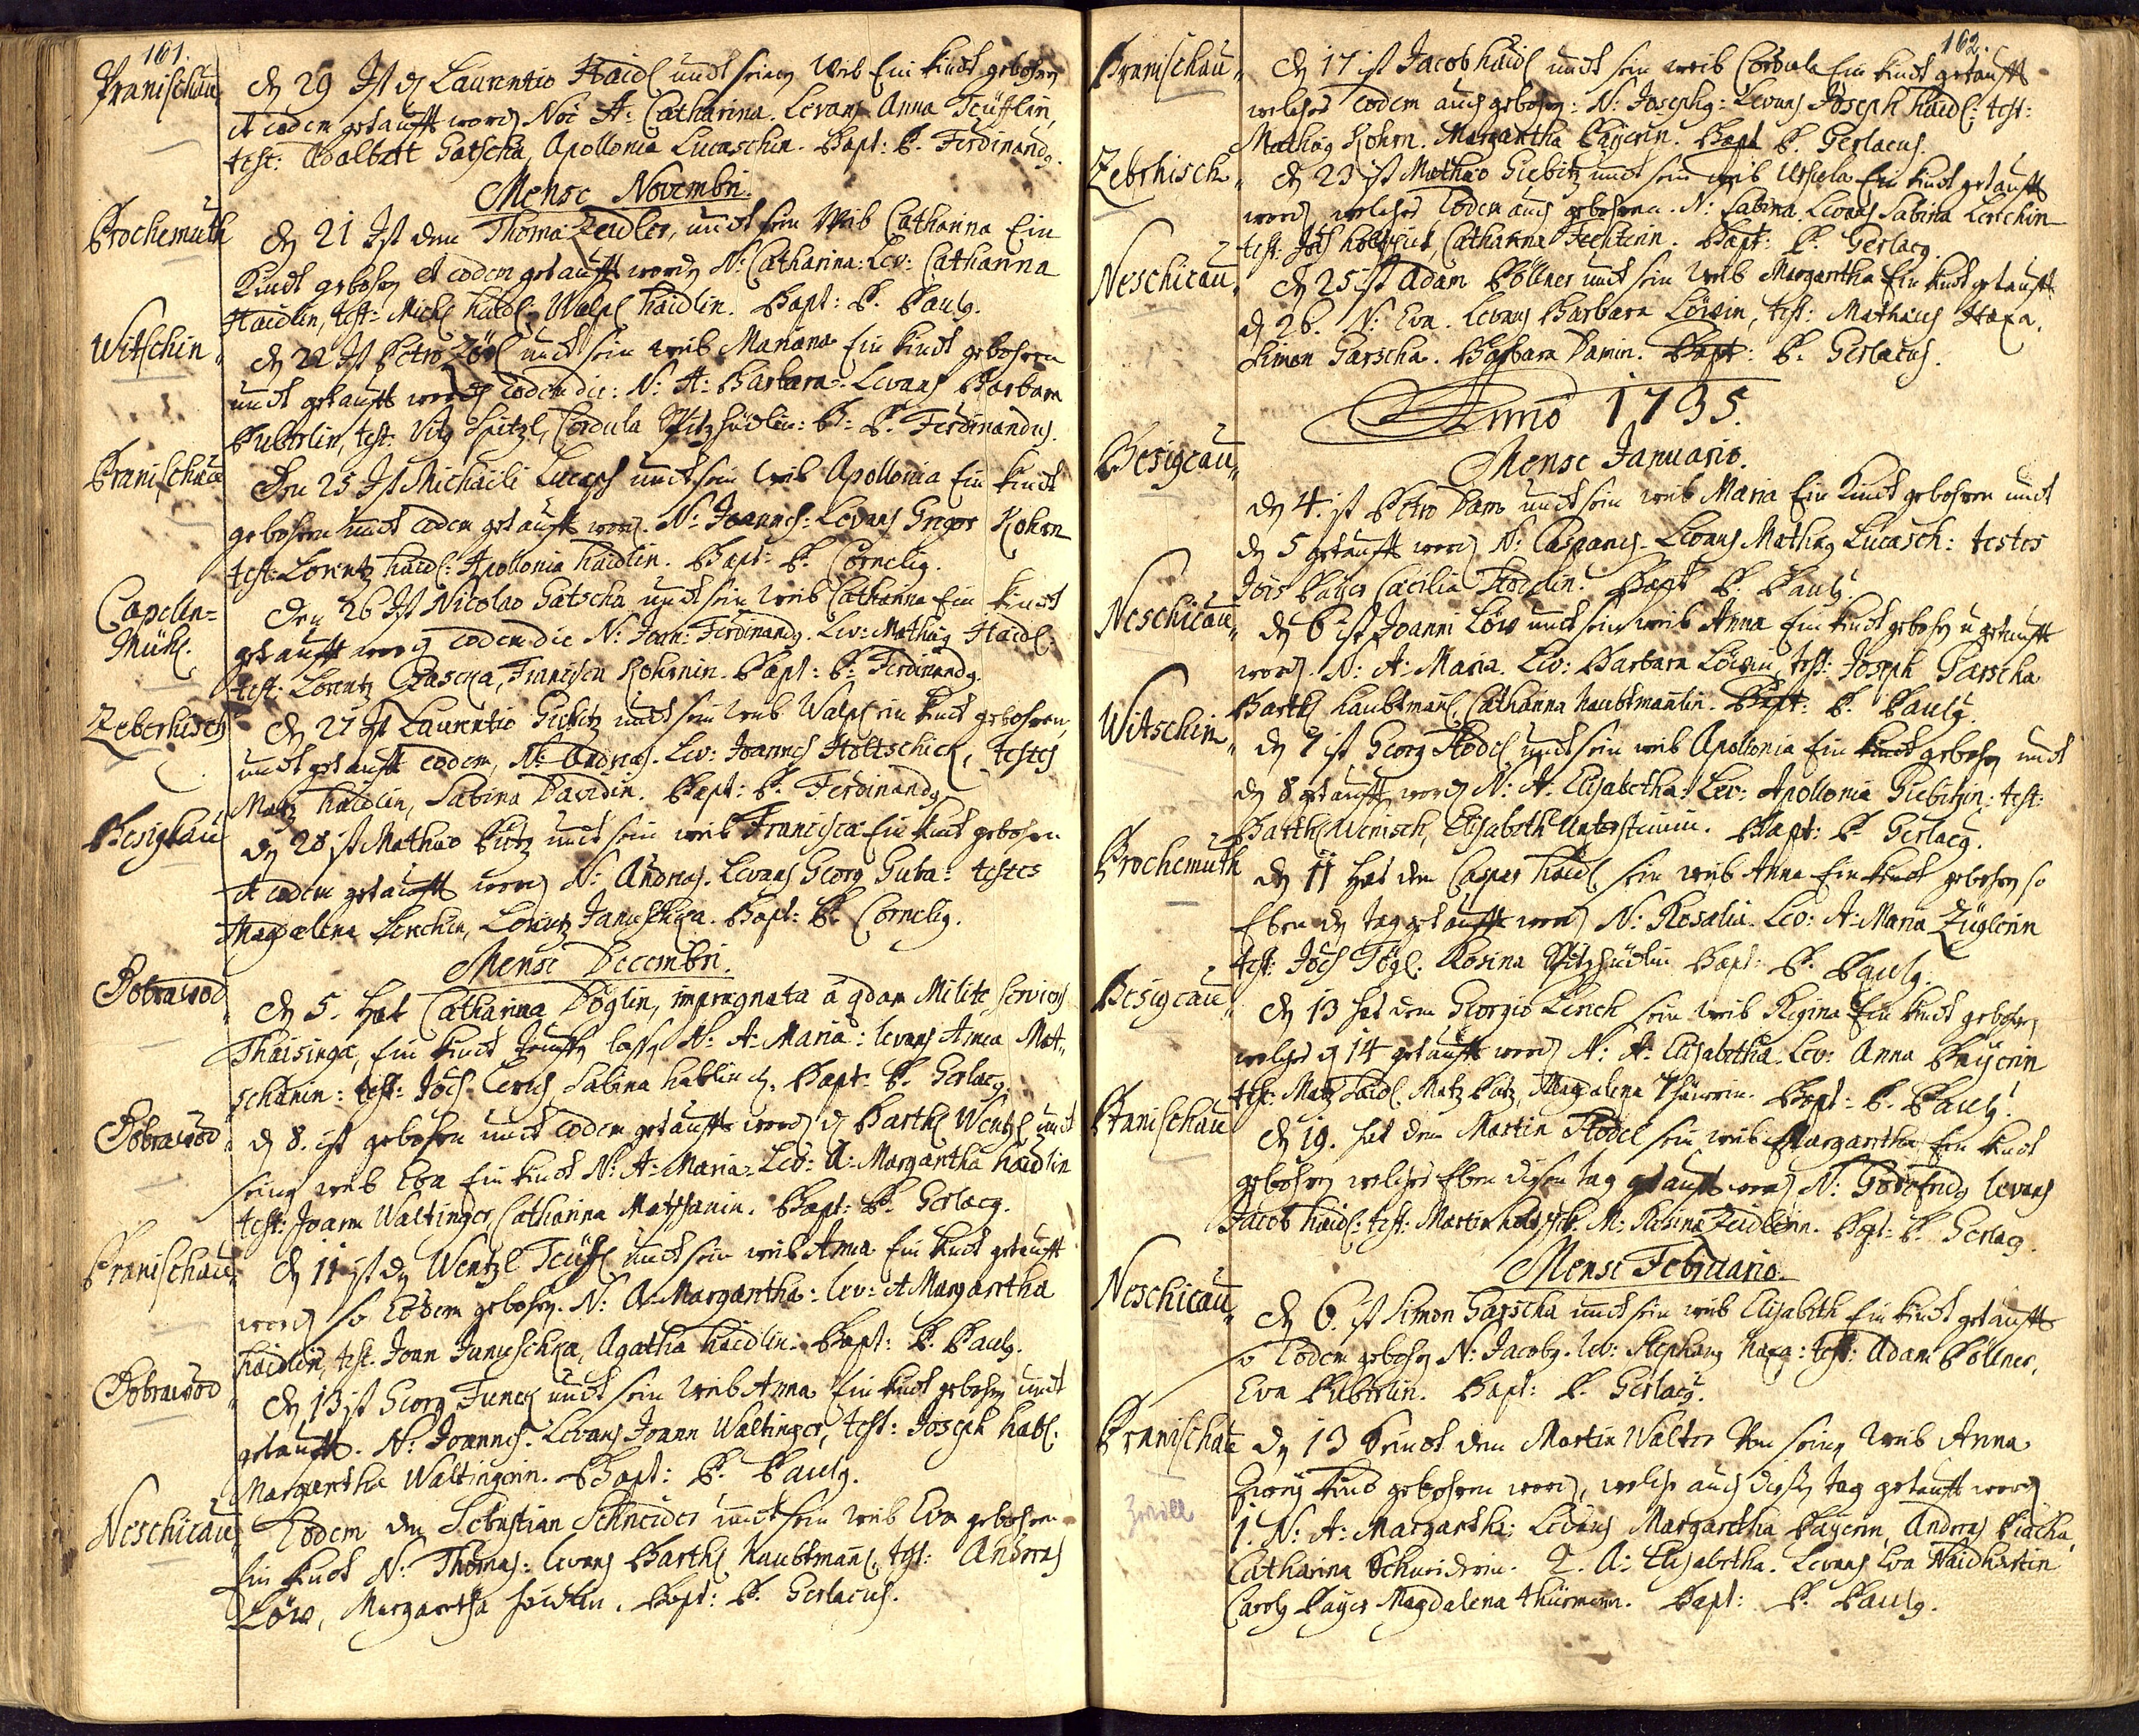 161.
Pranischau
den 29 Ist den Laurentio Haidl undt seinen Weib Ein Kindt gebohren
et eodem getaufft worden Noe A: Catharina. Levans Anna Teüfflin,
test: Adalbert Gatscha, Apollonia Lucaschin. Bapt: P. Ferdinandg.
Mense Novembri.
Prochemuth
den 21 Ist dem Thoma Zeidler, undt sein Weib Catharina Ein
Kindt gebohren et eodem getaufft worden N: Catharina: Lev: Catharina
Haidlin, test: Michl Haidl: Walpl Haidlin. Bapt: P. Paulg.
Witschin
den 22 Ist Petro undt sein weib Mariana Ein Kindt gebohren
undt getaufft worden eodem die: N: A: Barbara: Levans Barbara
Puberlin, test: Vitg Spitzl, Cordula Spitzhüdlin: B: P. Ferdinandus.
Pranischau
Den 25 Ist Michaeli Lucasch undt sein Weib Apollonia Ein Kindt
gebohren undt eodem getaufft word. N: Joannes: Levans Gregor Kohrn
test: Lorentz Haidl: Apollonia Haidlin. Bapt: P. Cornelig.
Capelln=
Mühl.
Den 26 Ist Nicolao Gatscha undt sein Weib Catharina Ein Kindt
getaufft word eodem die N: Joan: Ferdinandg. Lev: Mathiag Haidl:
test: Lorentz Francisca Kohrnin. Bapt: P. Ferdinandg.
Zeberhisch
den 27 Ist Laurentio Giebitz undt sein Weib Walpl ein Kindt gebohren,
undt getaufft eodem, N: Andreas. Lev: Joannes Holtschick, testes
Matz Haidlin, Sabina Davidin. Bapt: P. Ferdinandg
Pesigkau
den 28 ist Mathiae Putz undt sein weib Francisca Ein Kindt gebohren
et eodem getaufft word N: Andreas. Levans Georg Guba: testes
Magdalena Lerchin, Lorentz Januschka. Bapt: P. Cornelig.
Mense Decembri.
Dobrawod
den 5. hat Catharina Döglin, impregnata a qdam Milite servient
Thaisinga, Ein Kindt tauffen lassen N: A: Maria: levans Anna Mat=
schanin: test: Joes Lerch, Sabina Hablin. Bapt: P. Gerlacg.
Dobrawod
den 8. ist gebohren undt eodem getaufft worden den Barthl Wentzl undt
seinen weib Eva Ein Kindt N: A: Maria: Lev: A: Margaretha Haidlin
test: Joann Waltinger, Catharina Matschanin. Bapt: P. Gerlacg.
Pranischau
den 11 ist den Wentzl Teüfl undt sein weib Anna Ein Kindt getaufft
worden so Eodem gebohren. N: A. Margaretha: lev: A Margaretha
Haidlin, test. Joan Januschka, Agatha Haidlin. Bapt: P. Paulg.
Dobrawod
den 13 ist Georg Funck undt sein weib Anna Ein Kindt gebohren undt
getaufft. N: Joannes. Levans Joann Waltinger, test: Joseph Habl.
Margaretha Waltingerin. Bapt: P. Paulg.
Neschicau
Eodem den Sebastian Schneider undt sein weib Eva gebohren
Ein Kindt N: Thomas: levans Barthl Haubtmanl, test: Andreas
Löw, Margaretha. Bapt: P. Gerlacus.
162.
Pranischau
den 17 ist Jacob Haidl undt sein weib Cordula Ein Kindt getaufft
welches eodem auch gebohren: N: Josephg: Levans Joseph Haidl: test:
Mathiag Kohrn. Margaretha Payerin. Bapt P. Gerlacus.
Zebrhisch
den 23 ist Mathaeo Giebitz undt sein weib Ursula Ein Kindt getaufft
word, welches Eodem auch gebohren. N: Sabina. Levans Sabina Lerchin
test: Joes Holtschick, Catharina Fechterin. Bapt: P. Gerlacg.
Neschicau
den 25 ist Adam Pöllner undt sein Weib Margaretha Ein Kindt getaufft
den 26. N: Eva. Levans Barbara Löwin, test: Mathaeus Haxa.
Simon Garscha. Barbara Damin. Bapt: P. Gerlacus.
Anno 1735.
Mense Januario.
Pesigcau
den 4. ist Petro Dam undt sein weib Maria Ein Kindt gebohren undt
den 5 getaufft word N: Casparus. Levans Mathiag Lucasch: testes
Joes Payer Caecilia Stoeclin. Bapt P. Paulg.
Neschicau
den 6 ist Joanni Löw undt sein weib Anna Ein Kindt gebohren u getaufft
word. N: A: Maria. Lev: Barbara Löwin, test: Joseph Garscha
Barthl Haubtmanl, Catharina Haubtmannlin. Bapt: P. Paulg.
Witschin
den 7 ist Georg Stöckl undt sein weib Apollonia Ein Kindt gebohren undt
den 8 getaufft worden N: A: Elisabetha. Lev: Apollonia Giebitzin: test:
Barthl Wenisch, Elisabeth Untersteinin. Bapt: P. Gerlacg.
Prochemuth
den 11 hat dem Casper Haidl sein weib Anna Ein Kindt gebohren so
Eben den tag getaufft word N: Rosalia. Lev: A: Maria Züglerin
test: Joes Fögl. Rosina Spitzhüdlin Bapt: P. Paulg.
Pesigcau
den 13 hat dem Georgio Lerch sein weib Regina Ein Kindt gebohren
welches den 14 getaufft worden N: A: Elisabetha. Lev: Anna Payerin
test: Matz Haidl Matz Putz, Magdalena. Bapt: P. Paulg.
Pranischau
den 19. hat dem Martin Stöckl sein weib Margaretha Ein Kindt
gebohren welches Eben disen tag getaufft word N: Godefridg levans
Jacob Haidl: test: Martin M: Rosina Zeidlerin. Bapt: P. Gerlacg.
Mense Februario.
Neschicau
den 6. ist Simon Garscha undt sein weib Elisabeth Ein Kindt getaufft
so Eodem gebohren N: Jacobg. lev: Stephang Haxa: test: Adam Pöllner,
Eva Puberlin. Bapt: P. Gerlacg.
Pranischau
den 13 Seindt dem Martin Walter Von seinen weib Anna
Zwey Kind gebohren word, welche auch diesen tag getaufft word
Zwill
1. N: A: Margaretha: Levans Margaretha Payerin, Andreas
Catharina Schneiderin. 2. A: Elisabetha. Levans Eva Haidhartin
Carolg Payer Magdalena. Bapt: P. Paulg.